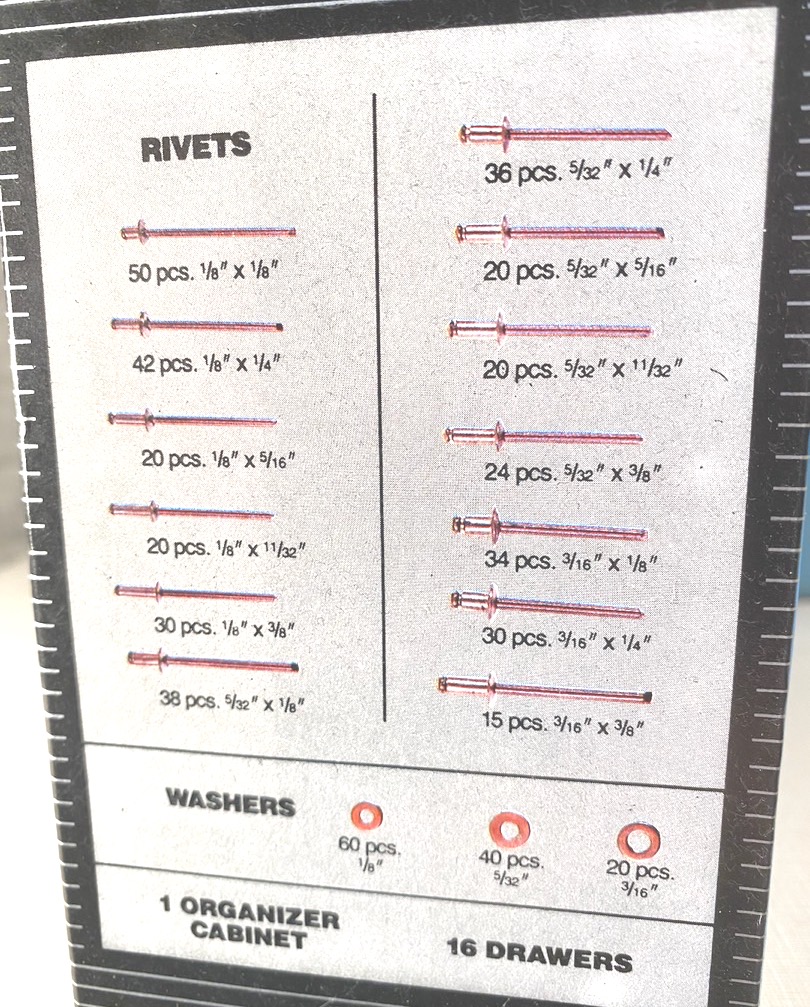 RIVETS
50 pcs. 1/8" x 1/8"
42 pcs. 1/8" x 1/4"
20 pcs. 1/8" x 5/16"
20 pcs. 1/8" x 11/32"
30 pcs. 1/8" x 3/8"
38 pcs. 5/32" x 1/8"
36 pcs. 5/32" x 1/4"
20 pcs. 5/32" x 5/16"
20 pcs. 5/32" x 11/32"
24 pcs. 5/32" x 3/8"
34 pcs. 3/16" x 1/8"
30 pcs. 3/16" x 1/4"
15 pcs. 3/16" x 3/8"
WASHERS
60 pcs.
1/8"
40 pcs.
5/32"
20 pcs.
3/16"
1 ORGANIZER
CABINET
16 DRAWERS